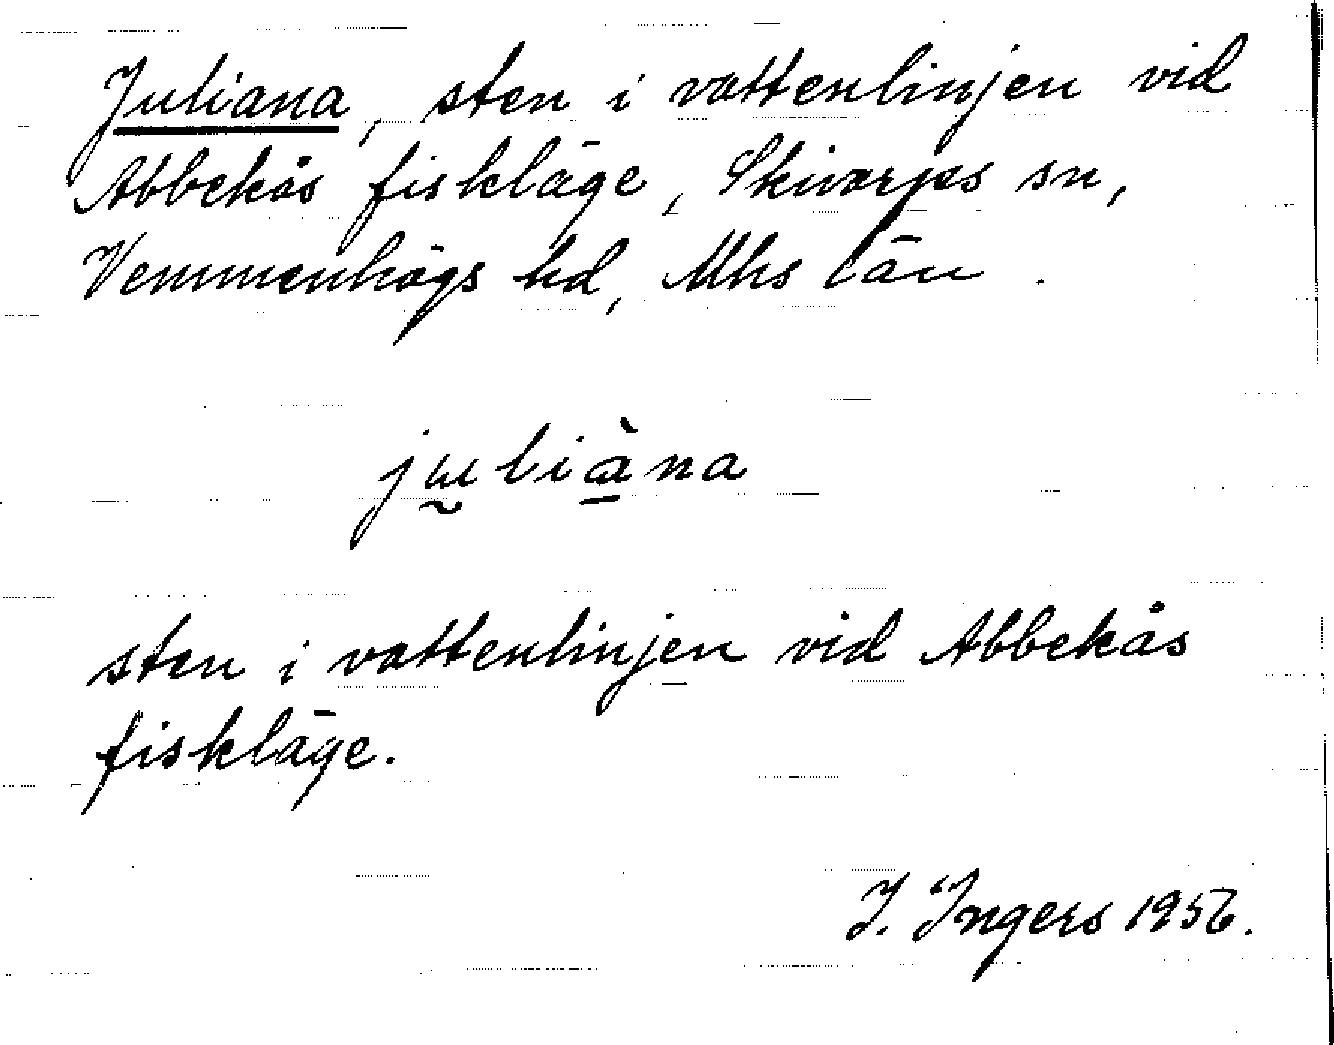 Juliana, sten i vattenlinjen vid
Abbekås fiskläge, Skivarps sn,
Vemmenhögs hd, Mhs län.
juliàna
sten i vattenlinjen vid Abbekås
fiskläge.
I. Ingers 1956.